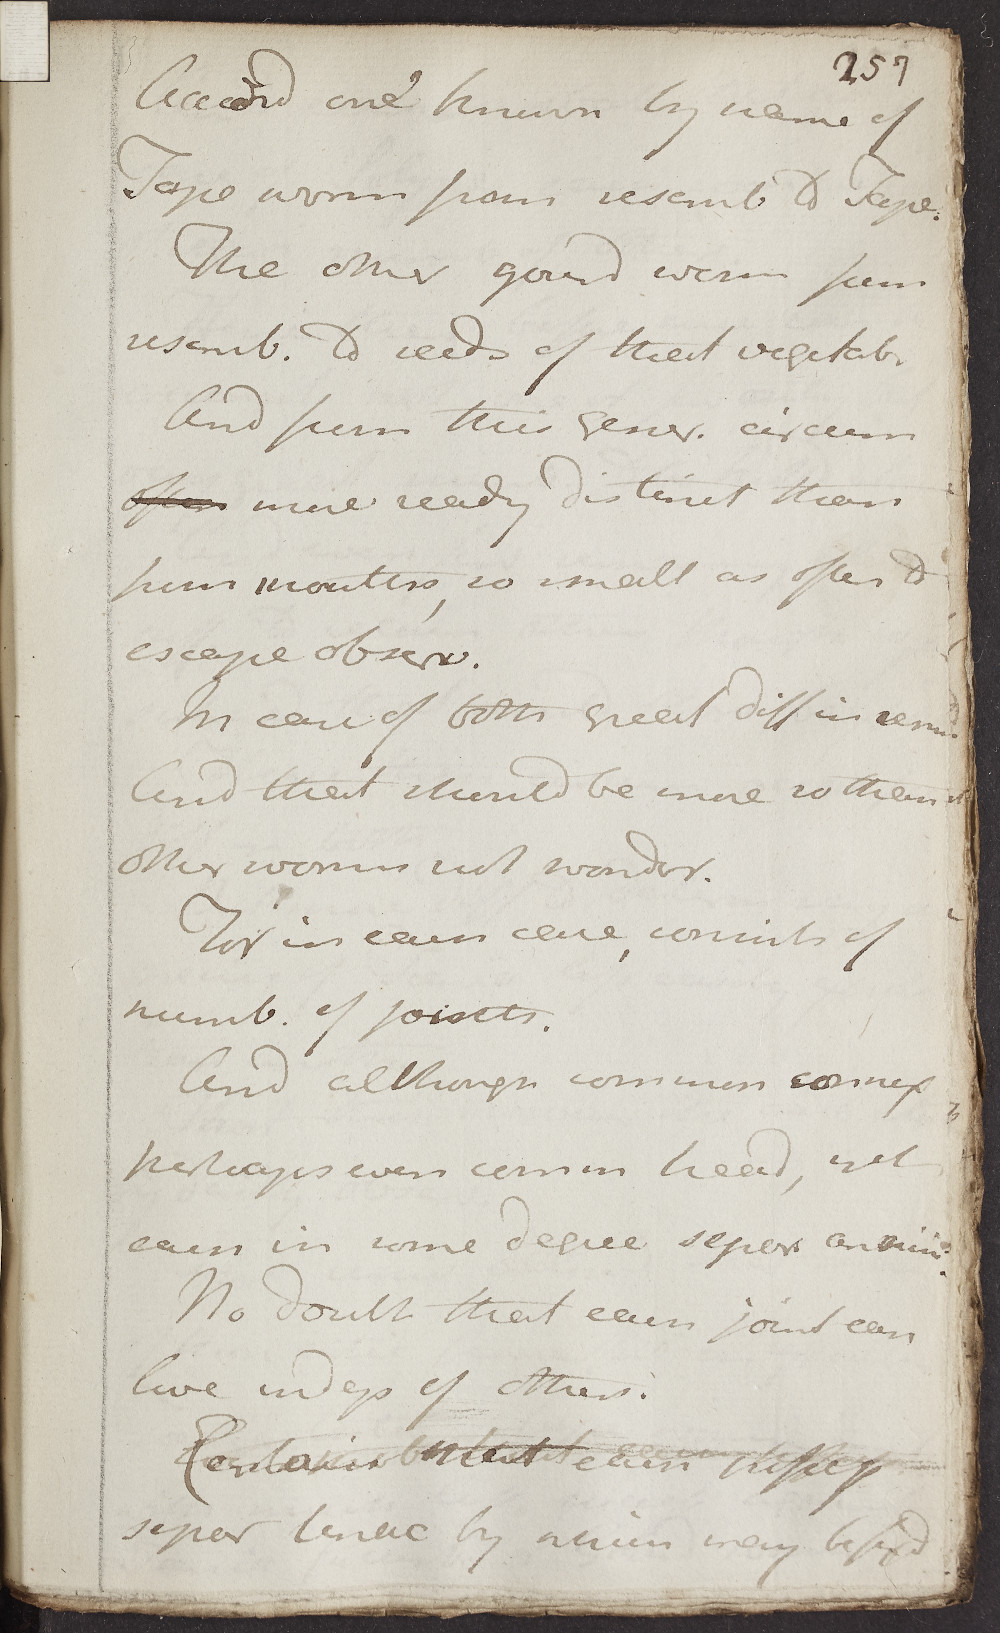 257
Accord one known by name of
Tape worm from resemb to Tape.
The other gourd worm from
resemb. to seeds of that vegetab.
And from this gener. circum
often more ready distinct than
from mouths, so small as often to
escape observ.
In case of both great diff in remov.
And that should be more so than in
other worms not wonder.
For in each case, consists of
numb. of joints.
And although common connex
perhaps even comm head, yet
each in some degree separ anim.
No doubt that each joint can
live indep of others.
Certain that each
separ tenac by which may be fixd